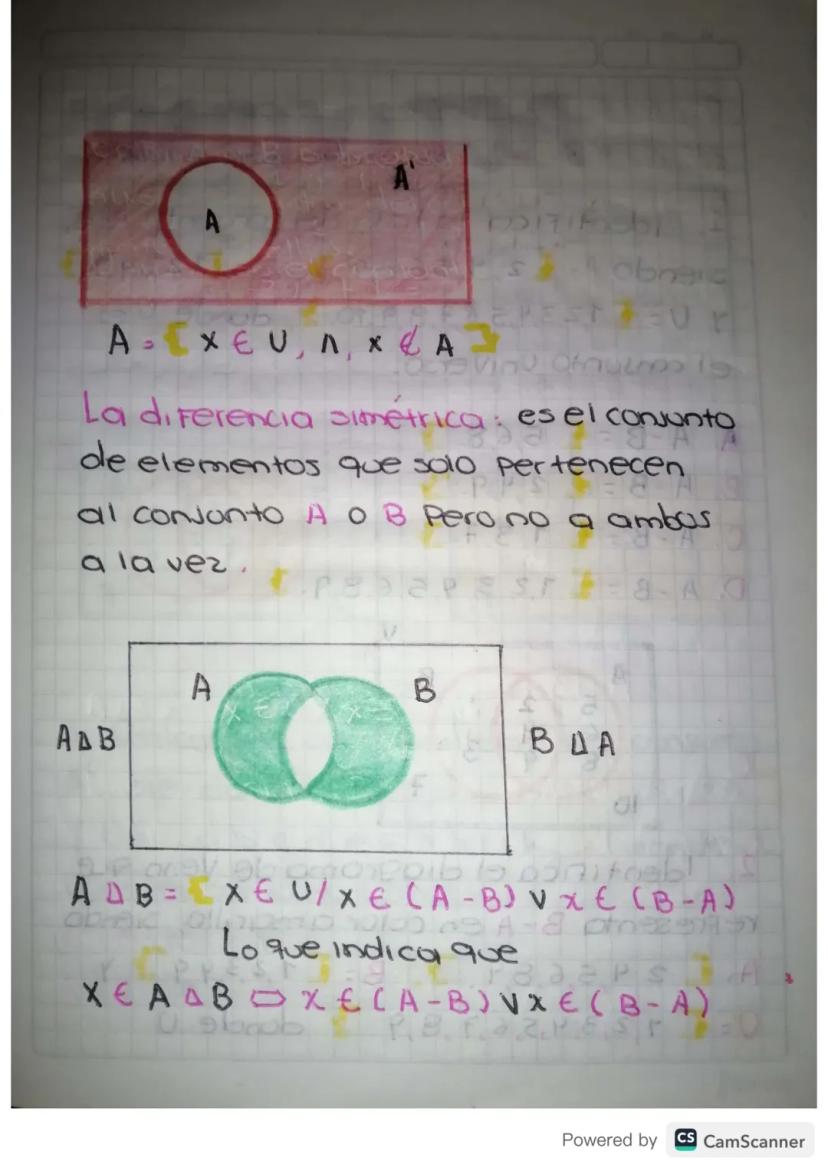 A'
A
A = { x ∈ U, ∧, x ∉ A }
La diferencia simétrica: es el conjunto
de elementos que solo pertenecen
al conjunto A o B pero no a ambos
a la vez.
A B
A Δ B B Δ A
A Δ B = { x ∈ U / x ∈ (A - B) ∨ x ∈ (B - A)
Lo que indica que
x ∈ A Δ B ⇔ x ∈ (A - B) ∨ x ∈ (B - A)
Powered by CS CamScanner